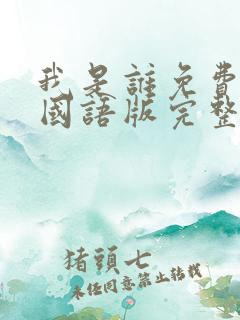 我是誰免費
國語版完整
猪頭七
未经同意禁止转载